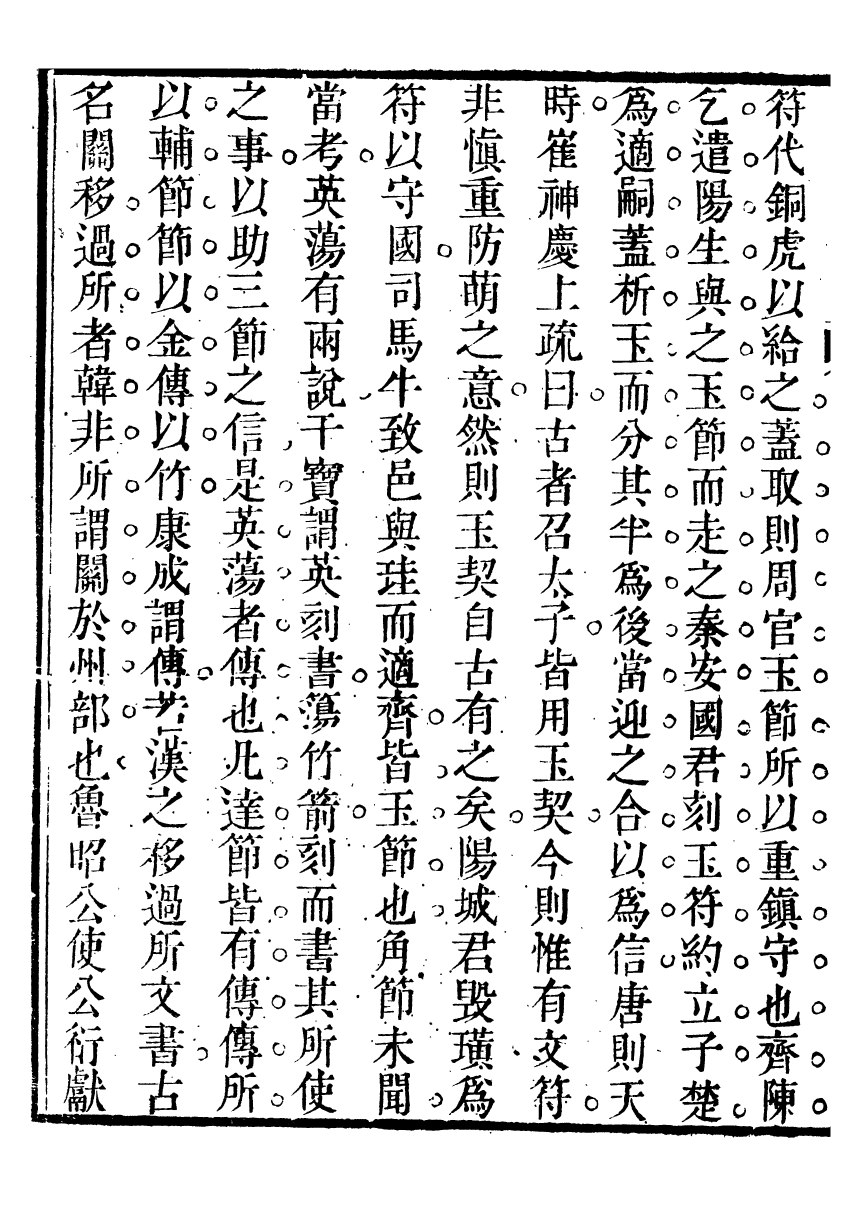 符代銅虎以給之蓋取則周官玉節所以重鎮守也齊陳
乞遣陽生與之玉節而走之秦安國君刻玉符約立子楚
爲適嗣蓋析玉而分其半爲後當迎之合以爲信唐則天
時崔神慶上疏曰古者召太子皆用玉契今則惟有文符
非愼重防萌之意然則玉契自古有之矣陽城君毀璜爲
符以守國司馬牛致邑與珪而適齊皆玉節也角節未聞
當考英蕩有兩說干寶謂英刻書蕩竹箭刻而書其所使
之事以助三節之信是英蕩者傳也凡達節皆有傳傳所
以輔節節以金傳以竹康成謂傳若漢之移過所文書古
名關移過所者韓非所謂關於州部也魯昭公使公衍獻